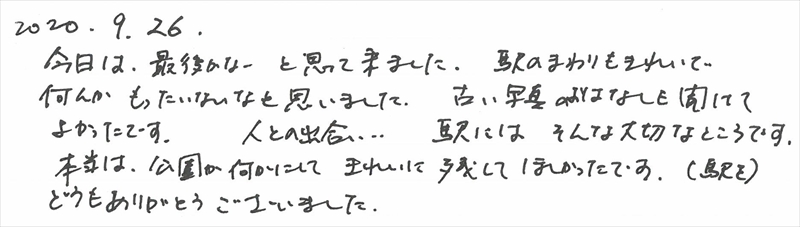 2020.9.26.
今日は、最後かなー と思って来ました. 駅のまわりもきれいで
何んか もったいないなと思いました. 古い写真のおはなしも聞けて
よかったです. 人との出合い… 駅には そんな大切なところです.
本当は、公園か何かにして きれいに 残して ほしかったです. (駅を)
どうもありがとうございました.